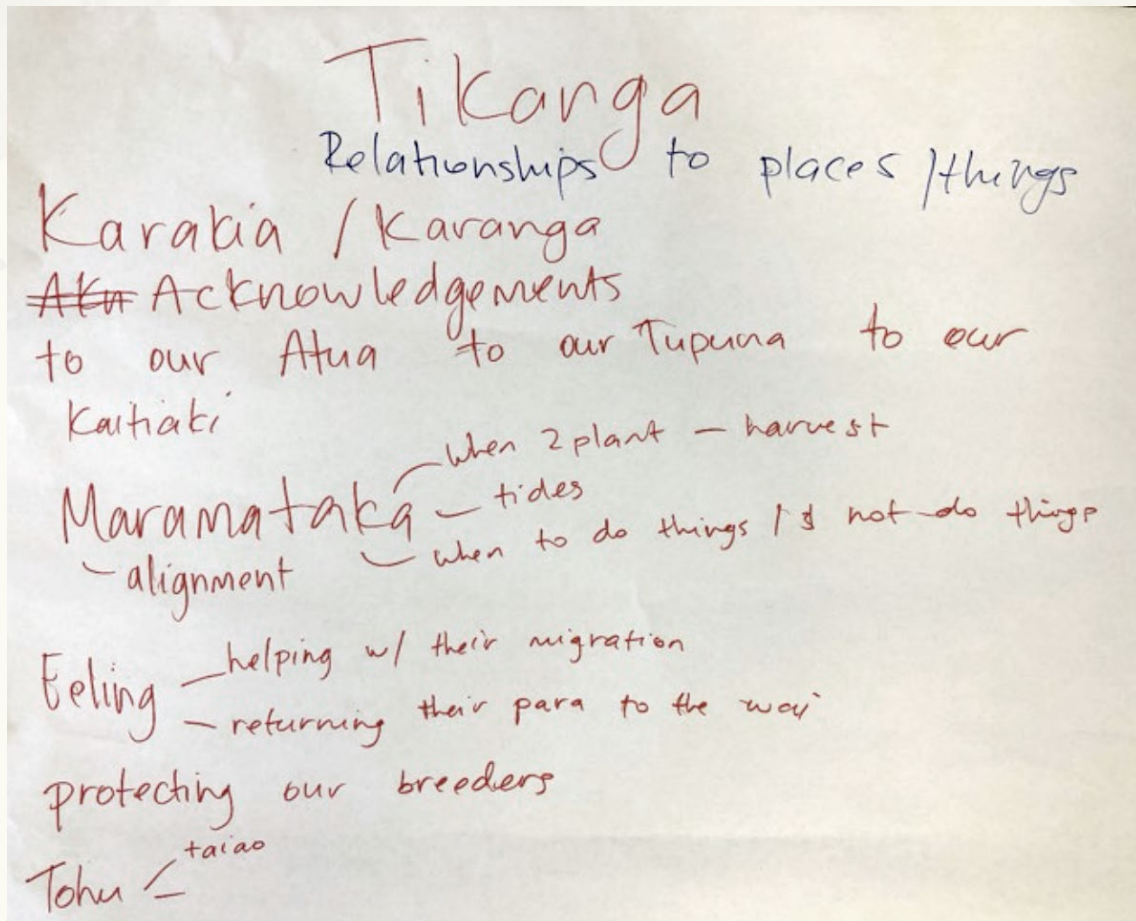 Tikanga
Relationships to places/things
Karakia / Karanga
Acknowledgements
to our Atua to our Tupuna to our
Kaitiaki
when 2 plant - harvest
Maramataka - tides
- when to do things / & not do things
- alignment
- helping w/ their migration
Eeling
- returning their para to the
protecting our breeders
taiao
Tohu